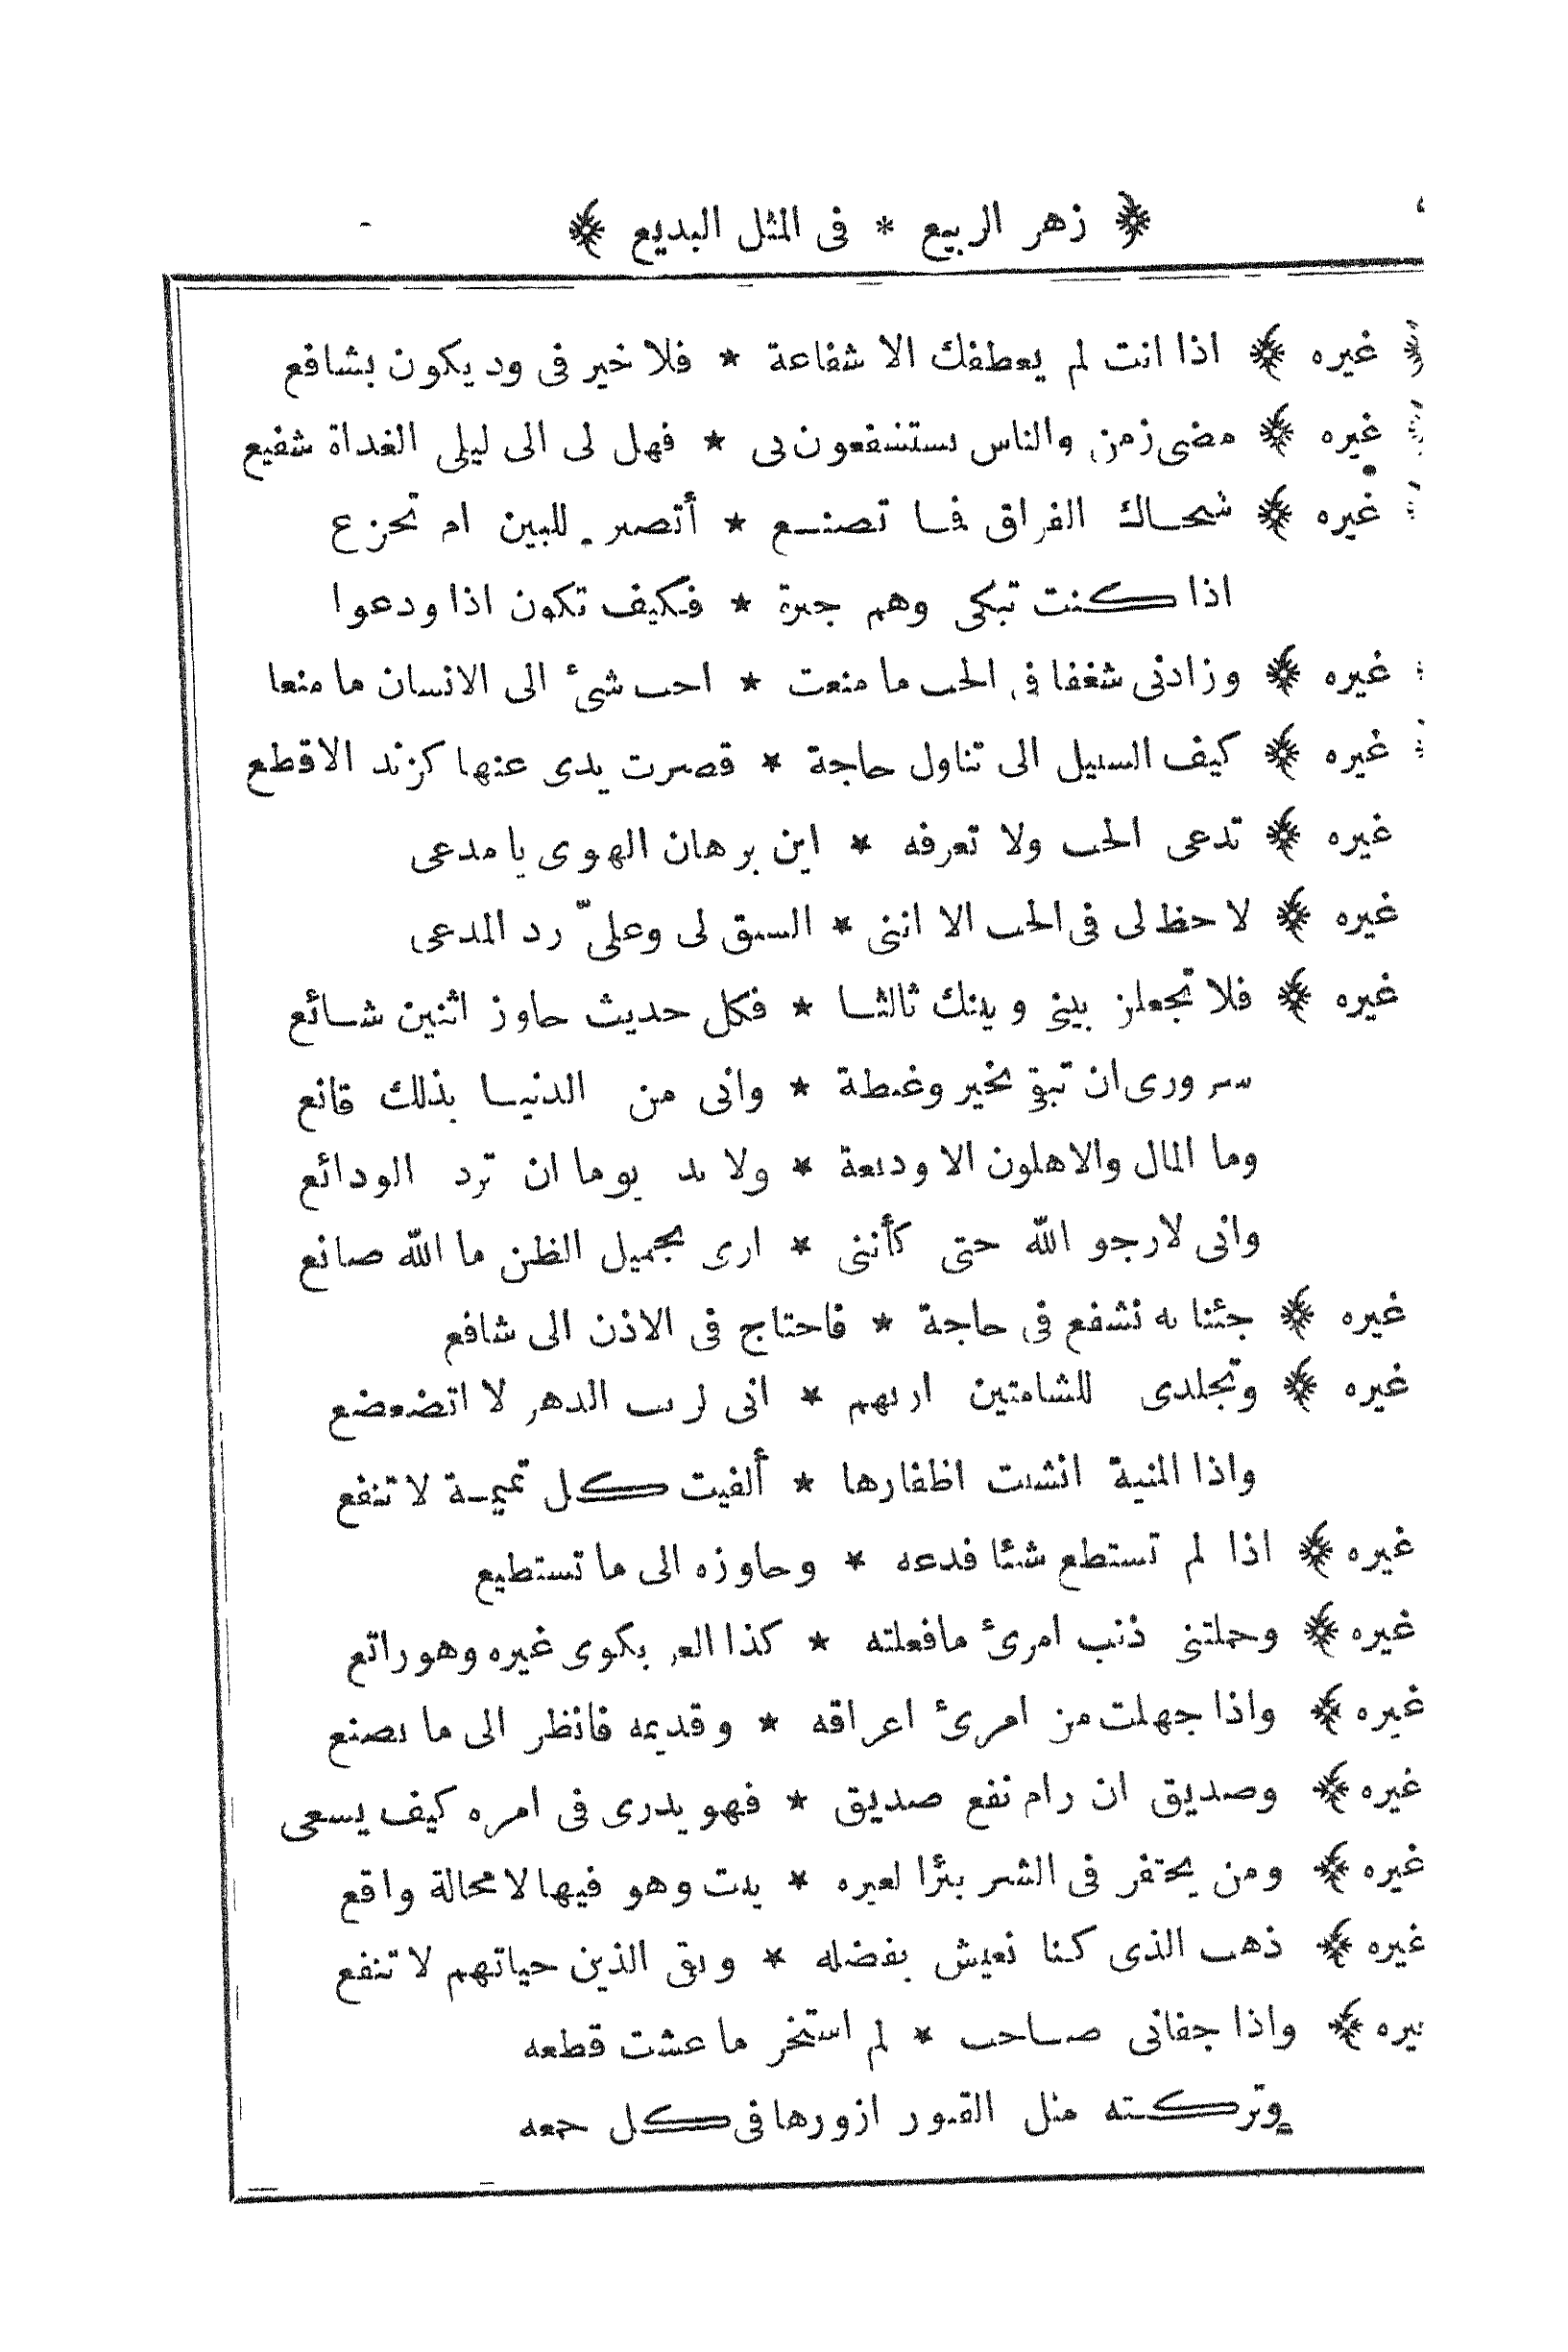 ﴿ زهر الربيع * فى المثل البديع ﴾
﴿ غيره ﴾ اذا انت لم يعطفك الا شفاعة * فلا خير فى ود يكون بشافع
﴿ غيره ﴾ مضى زمن والناس يستشفعون بى * فهل لى الى ليلى الغداة شفيع
﴿ غيره ﴾ شجاك الفراق فما تصنع * أتصبر للبين ام تجزع
اذا كنت تبكى وهم جيرة * فكيف تكون اذا ودعوا
﴿ غيره ﴾ وزادنى شغفا فى الحب ما منعت * احب شىء الى الانسان ما منعا
﴿ غيره ﴾ كيف السبيل الى تناول حاجة * قصرت يدى عنها كزند الاقطع
غيره ﴾ تدعى الحب ولا تعرفه * اين برهان الهوى يا مدعى
غيره ﴾ لا حظ لى فى الحب الا اننى * السبق لى وعلىّ رد المدعى
غيره ﴾ فلا تجعلن بينى وبينك ثالثا * فكل حديث جاوز اثنين شائع
سرورى ان تبقى بخير وغبطة * وانى من الدنيا بذلك قانع
وما المال والاهلون الا وديعة * ولا بد يوما ان ترد الودائع
وانى لارجو الله حتى كأننى * ارى بجميل الظن ما الله صانع
غيره ﴾ جئنا به نشفع فى حاجة * فاحتاج فى الاذن الى شافع
غيره ﴾ وتجلدى للشامتين اريهم * انى لريب الدهر لا اتضعضع
واذا المنية انشبت اظفارها * ألفيت كل تميمة لا تنفع
غيره ﴾ اذا لم تستطع شئا فدعه * وجاوزه الى ما تستطيع
غيره ﴾ وحملتنى ذنب امرئ مافعلته * كذا العر يكوى غيره وهو راتع
غيره ﴾ واذا جهلت من امرئ اعراقه * وقديمه فانظر الى ما يصنع
غيره ﴾ وصديق ان رام نفع صديق * فهو يدرى فى امره كيف يسعى
غيره ﴾ ومن يحتفر فى الشر بئرا لغيره * يبت وهو فيها لا محالة واقع
غيره ﴾ ذهب الذى كنا نعيش بفضله * وبقى الذين حياتهم لا تنفع
غيره ﴾ واذا جفانى صاحب * لم استجز ما عشت قطعه
وتركته مثل القبور ازورها فى كل جمعه